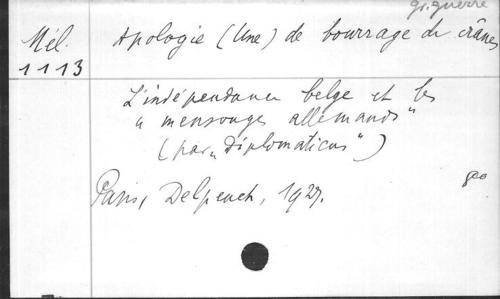 gr. guerre
Mél. Apologie (Une) de bourrage de crânes
1113
L'indépendance belge et les
"mensonges allemands"
(par "Diplomaticus")
Paris, Delpeuch, 1927.
geo